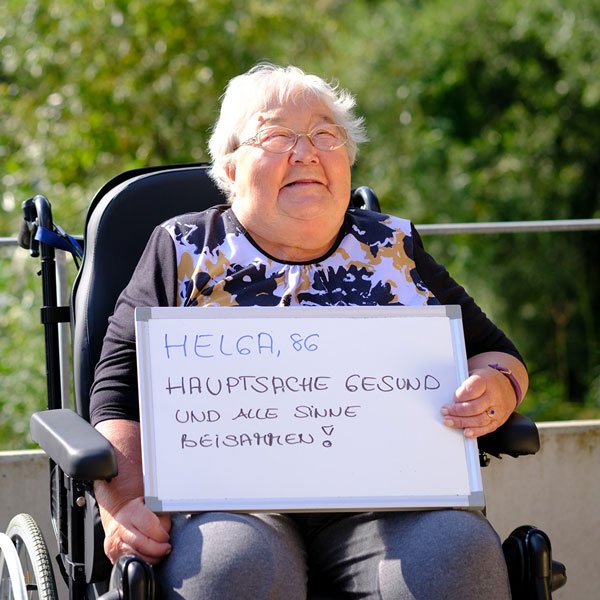 HELGA, 86
HAUPTSACHE GESUND
UND ALLE SINNE
BEISAMMEN!